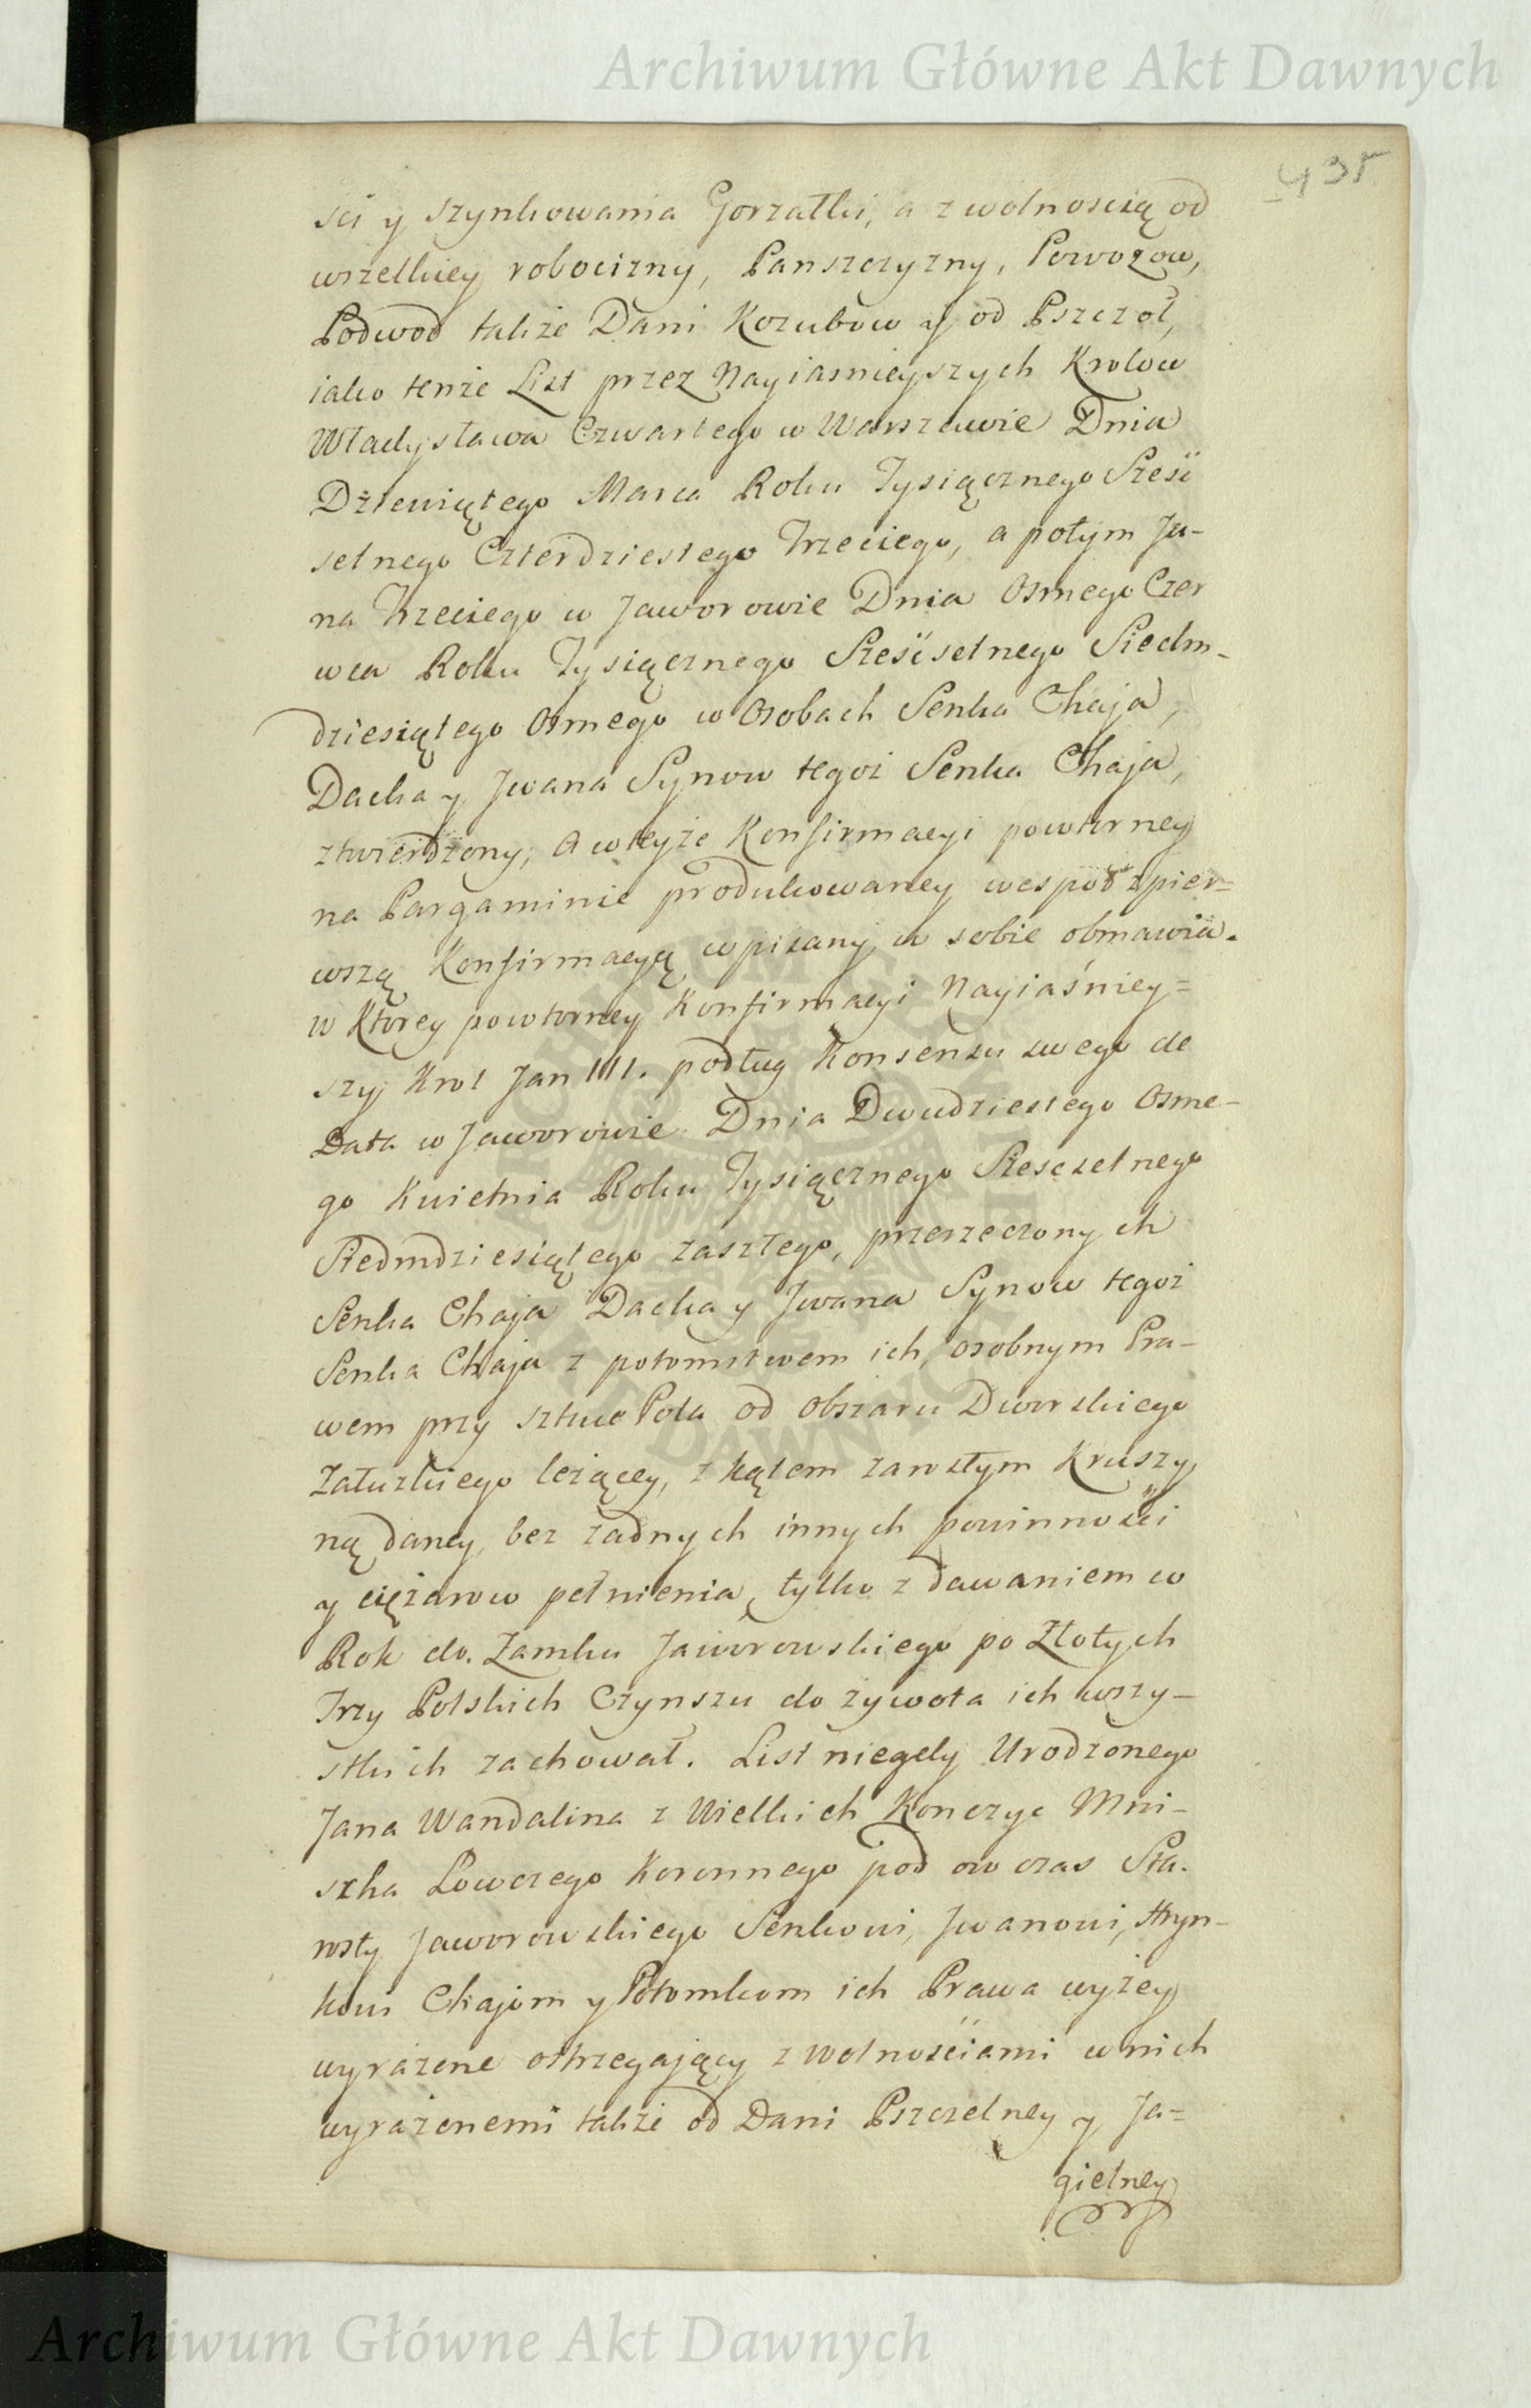 Archiwum Główne Akt Dawnych
435
sci y szynkowania Gorzałki, a z wolnoscią od
wszelkiey robocizny, Panszczyzny, Powozow,
Podwod także Dani Kozubow y od Pszczoł,
iako tenże List przez Nayiasnieyszych Krolow
Władysława Czwartego w Warszawie Dnia
Dziewiątego Marca Roku Tysiącznego Sześć
setnego Czterdziestego Trzeciego, a potym Ja-
na Trzeciego w Jaworowie Dnia Osmego Czer
wca Roku Tysiącznego Sześćsetnego Siedm-
dziesiątego Osmego w Osobach Senka Chaja,
Dacka y Jwana Synow tegoż Senka Chaja,
ztwierdzony, a w teyże Konfirmacyi powtorney
na Pargaminie produkowaney wespoł z pier=
wszą Konfirmacyą wpisany w sobie obmawia.
w Ktorey powtorney Konfirmacyi Nayiaśniey=
szy Krol Jan III. podług Konsensu swego de
Data w Jaworowie Dnia Dwudziestego Osme-
go Kwietnia Roku Tysiącznego Szescsetnego
Siedmdziesiątego zaszłego, przerzeczonych
Senka Chaja Dacka y Jwana Synow tegoż
Senka Chaja z potomstwem ich, osobnym Pra-
wem przy sztuce Pola od obszaru Dworskiego
Załuzkiego leżącey, z kątem zarosłym Kruszy
ną daney, bez żadnych innych powinności
y ciężarow pełnienia, tylko z dawaniem w
Rok do Zamku Jaworowskiego po Złotych
Trzy Polskich Czynszu do żywota ich wszy-
stkich zachował. List niegdy Urodzonego
Jana Wandalina z Wielkich Konczyc Mni-
szka Łowczego Koronnego pod ow czas Sta-
rosty Jaworowskiego Senkowi, Jwanowi, Hryn-
kowi Chajom y Potomkom ich Prawa wyżey
wyrażone ostrzegający z wolnościami w nich
wyrażonemi także od Dani Pszczelney y Ja=
gielney
Archiwum Główne Akt Dawnych